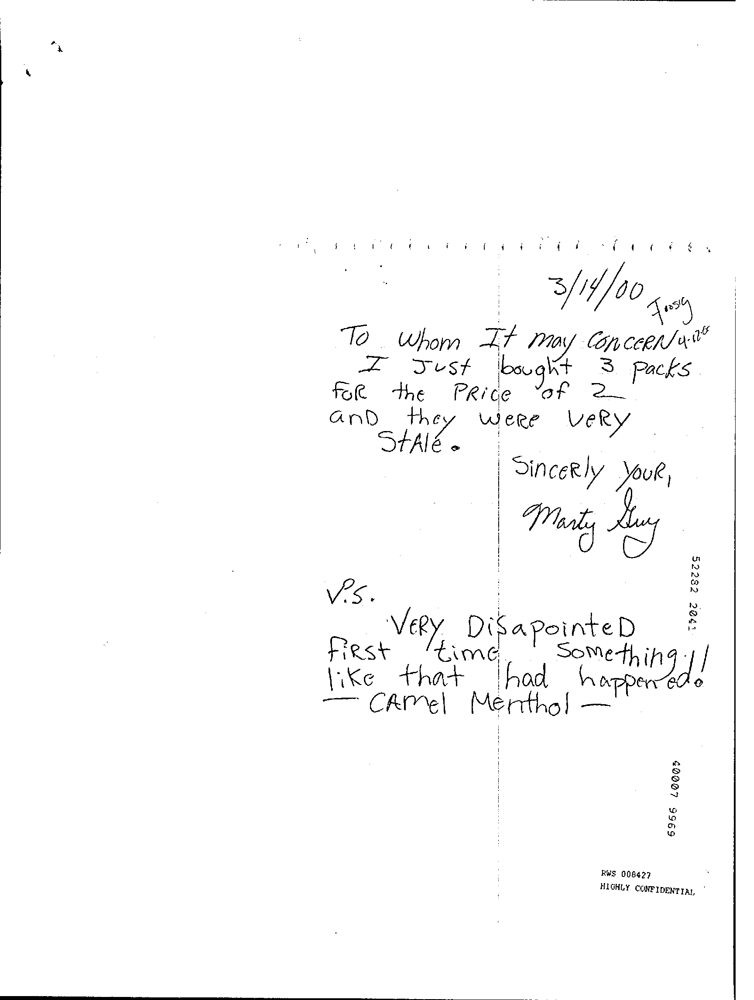 3/14/00
To Whom It may CONCERN
I Just bought 3 packs
FOR the PRice of 2
anD they weRe VeRY
StAle.
SinceRly YouR,
Marty Guy
P.S.
VeRY DiSapointeD
fiRst time something!!
like that had happened.
— CAmel Menthol —
52282 2041
40007 9969
RWS 008427
HIGHLY CONFIDENTIAL